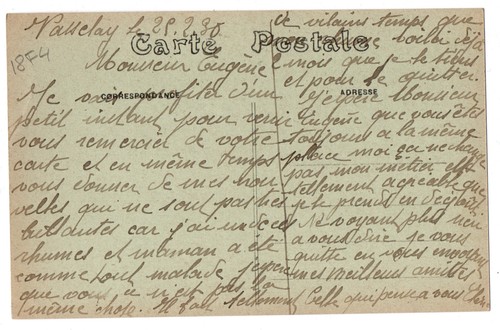 Vasselay le 25.2.30
18F4
Carte Postale
CORRESPONDANCE
ADRESSE
Monsieur Eugène
Je vais profiter d'un
petit instant pour venir
vous remercier de votre
carte et en même temps
vous donner de mes nou
velles qui ne sont pas très
brillantes car j'ai un
rhumes et maman a été
comme tout malade j'espère
que vous ce n'est pas la
même chose. Il fait tellement
de vilains temps que
voila déjà
mois que je le tiens
et pour le quitter.
J'espère Monsieur
Eugène que vous êtes
toujours a la même
place moi ça ne change
pas, mon métier est
tellement agréable que
je le prends en dégout
Ne voyant plus rien
a vous dire je vous
quitte en vous envoyant
mes meilleurs amitiés
Celle qui pense a vous